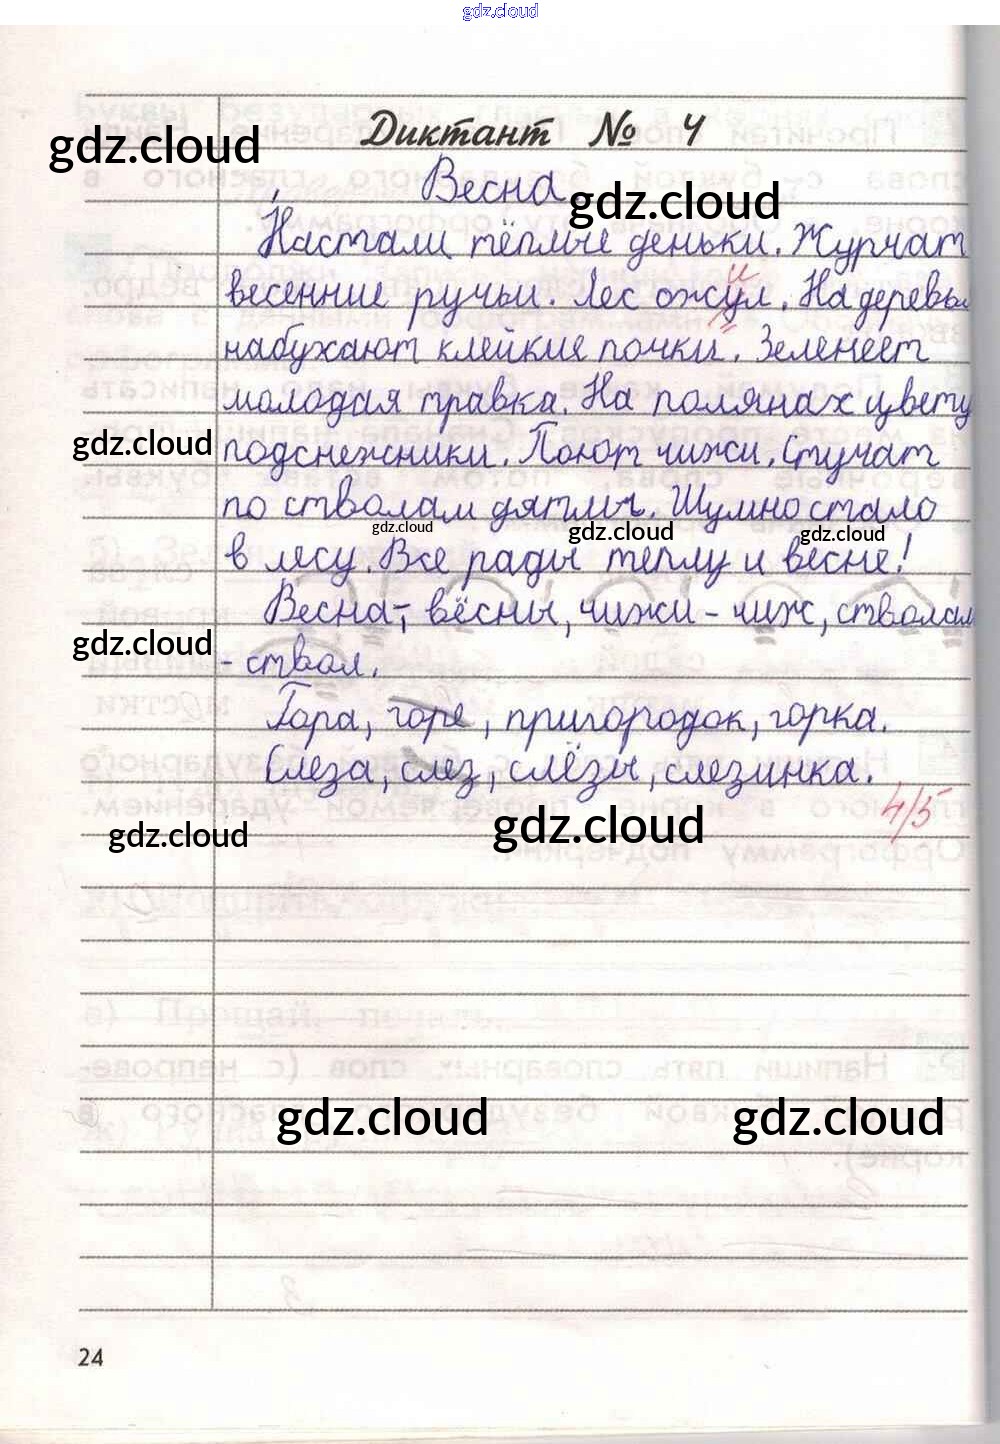 gdz.cloud
Диктант № 4
gdz.cloud
Весна
gdz.cloud
Настали тёплые деньки. Журчат
и
весенние ручьи. Лес ожул. На деревья
набухают клейкие почки. Зеленеет
молодая травка. На полянах цвету
gdz.cloud
подснежники. Поют чижи. Стучат
по стволам дятлы. Шумно стало
gdz.cloud gdz.cloud gdz.cloud
в лесу. Все рады теплу и весне!
Весна-, вёсны, чижи - чиж, стволам
gdz.cloud
- ствол.
Гора, горе, пригородок, горка.
Слеза, слез, слёзы, слезинка.
4/5
gdz.cloud gdz.cloud
gdz.cloud gdz.cloud
24